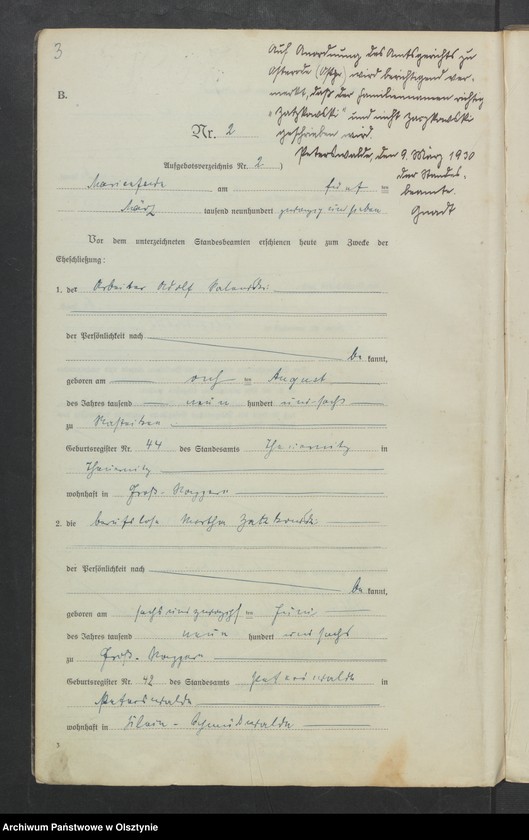 3
Auf Anordnung des Amtsgerichts zu
Osterode (Ostpr) wird berichtigend ver-
merkt, daß der Familiennamen richtig
"Zatzkowski" und nicht
geschrieben wird.
Peterswalde, den 9. März 1930
Der Standes-
beamte.
B.
Nr. 2
Aufgebotsverzeichnis Nr. 2 )
Marienfelde am fünf ten
März tausend neunhundert zwanzig und sieben
Vor dem unterzeichneten Standesbeamten erschienen heute zum Zwecke der
Eheschließung:
1. der Arbeiter Adolf
der Persönlichkeit nach
be kannt,
geboren am August
des Jahres tausend neun hundert und sechs
zu
Geburtsregister Nr. 44 des Standesamts Thierenberg in
wohnhaft in Groß-
2. die berufslose Martha
der Persönlichkeit nach
be kannt,
geboren am sechsundzwanzigsten Juni
des Jahres tausend neun hundert und sechs
zu Groß-
Geburtsregister Nr. 42 des Standesamts Peterswalde in
Peterswalde
wohnhaft in Klein-Schmückwalde
3
Archiwum Państwowe w Olsztynie